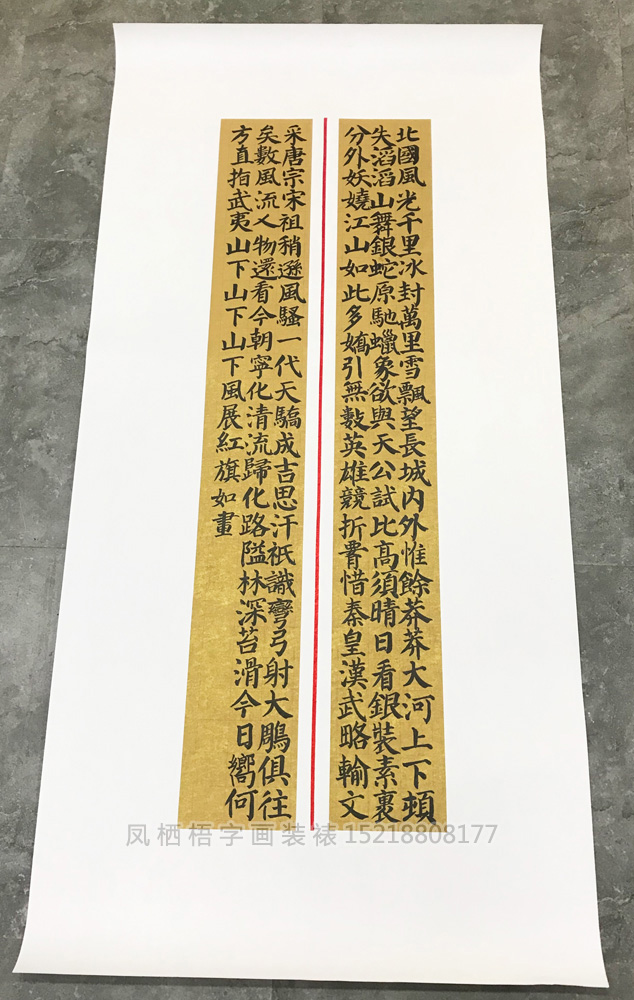 北國風光千里冰封萬里雪飄望長城內外惟餘莽莽大河上下頓
失滔滔山舞銀蛇原馳蠟象欲與天公試比高須晴日看銀裝素裹
分外妖嬈江山如此多嬌引無數英雄競折腰惜秦皇漢武略輸文
采唐宗宋祖稍遜風騷一代天驕成吉思汗祇識彎弓射大鵰俱往
矣數風流人物還看今朝寧化清流歸化路隘林深苔滑今日嚮何
方直指武夷山下山下山下風展紅旗如畫
凤栖梧字画装裱15218808177